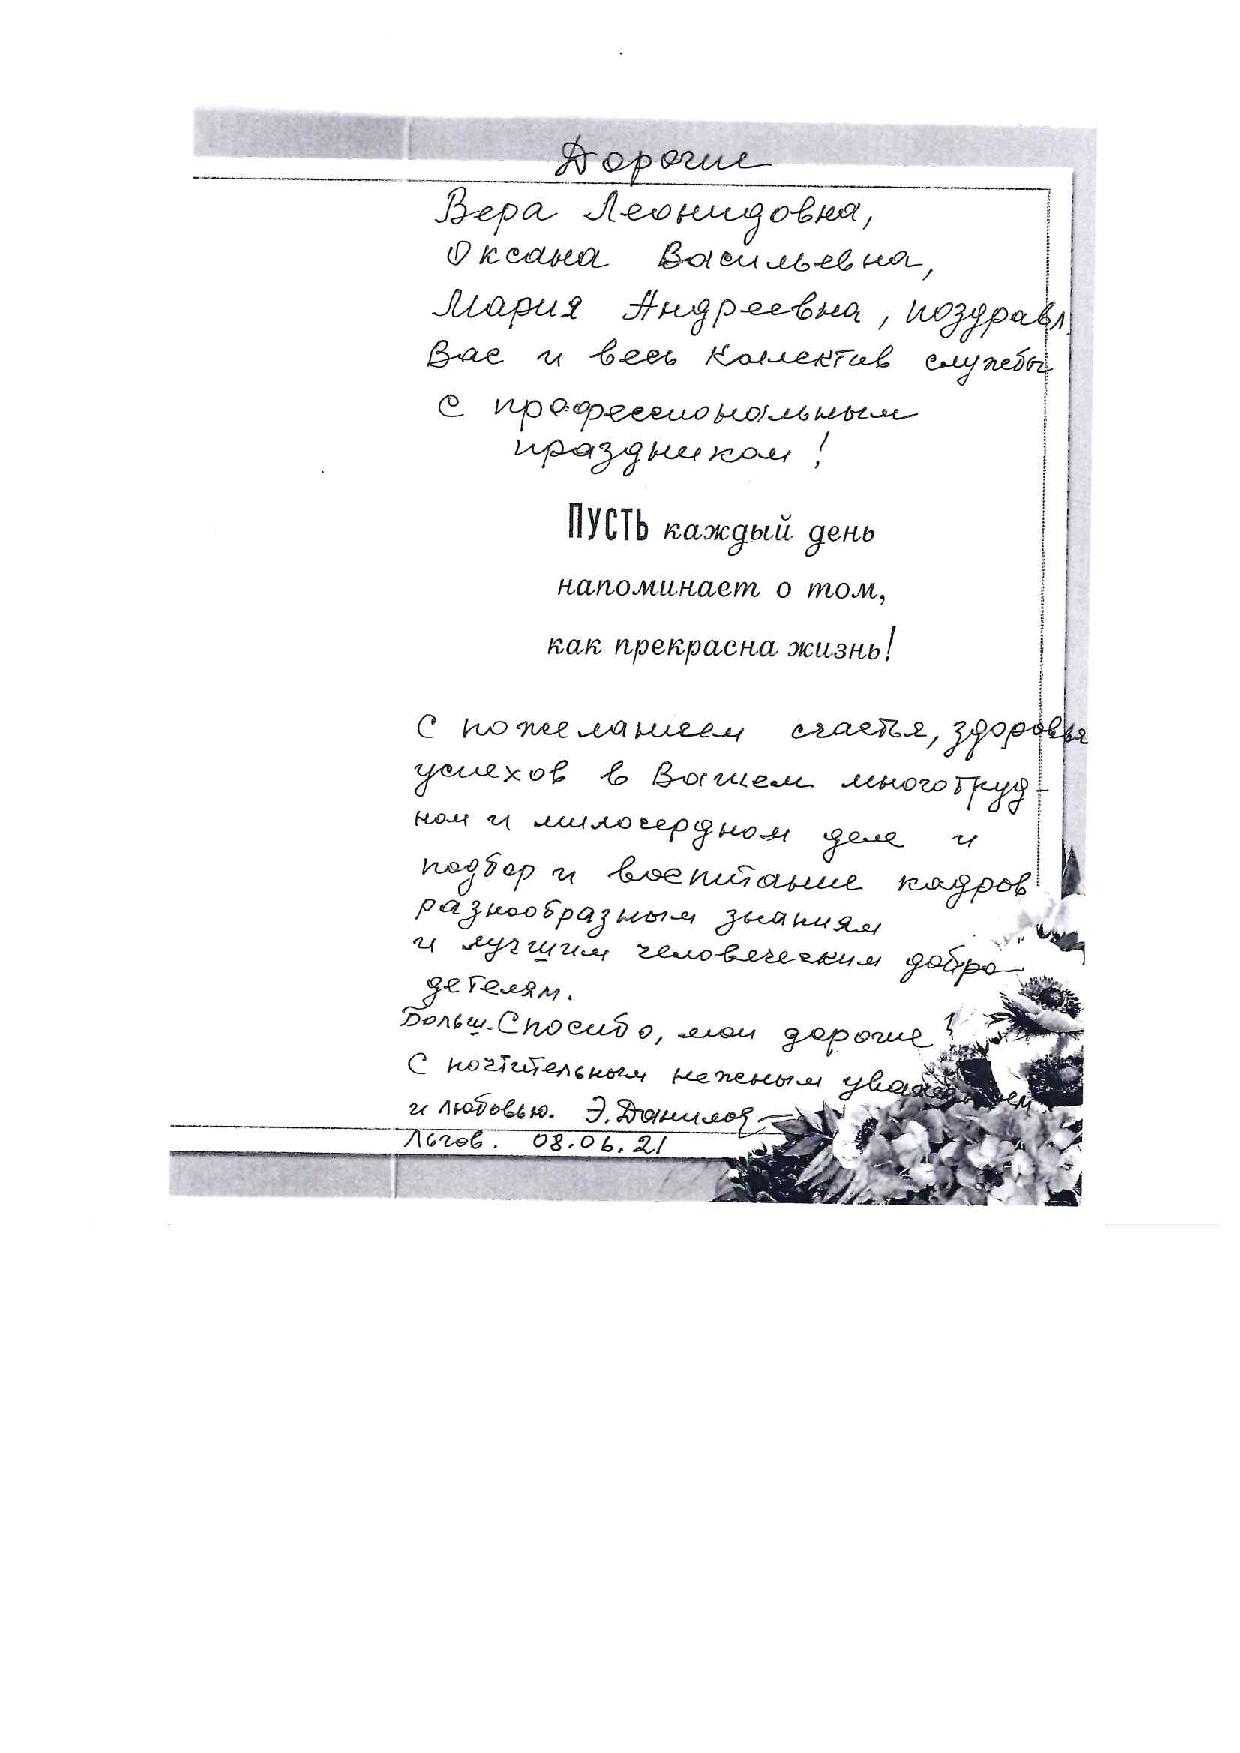 Дорогие
Вера Леонидовна,
Оксана Васильевна,
Мария Андреевна, поздравл.
Вас и весь коллектив службы
с профессиональным
праздником!
ПУСТЬ каждый день
напоминает о том,
как прекрасна жизнь!
С пожеланием счастья, здоровья
успехов в Вашем многотруд-
ном и милосердном деле и
подбор и воспитание кадров
разнообразным знаниям
и лучшим человеческим добро-
детелям.
Больш. Спосибо, мои дорогие!
С почтительным нежным уважением
и любовью. Э.Данилов
Льгов. 08.06.21